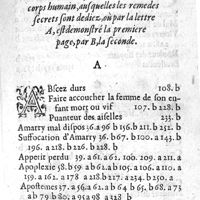 corps humain, ausquelles les remedes
secrets sont dediez, où par la lettre
A, est demonstré la premiere
page, par B, la seconde.
A
ABscez durs 108. b
Faire accoucher la femme de son en-
fant mort ou vif 107. b 128. b
Puanteur des aiselles 233. b
Amarry mal dispos 36. a 96 b 156. b 211. b 251. b
Suffocation d'Amarry 36. b 67. b 100. a 143. b
196. a 218. b 226. b 228. b
Appetit perdu 39. a 61. a 62. 100. 209. a 211. a
Apoplexie 58. b 59 a 61. b 62. a 65. b 159. b 194. b
a 220. a
Apostemes 37. a 56. a 62. a 64 b 65. b 68. a 73
ab 79 b 80. a 95 a 98 b 228. b